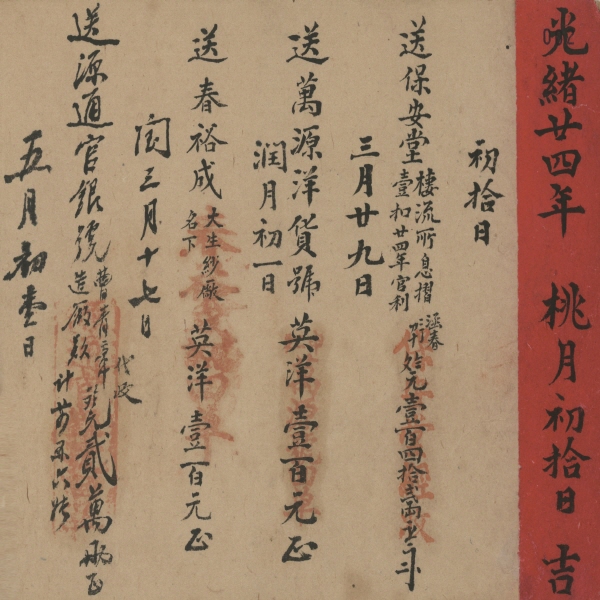 光緒廿四年 桃月初拾日 吉
初拾日
送保安堂 棲流所息摺
壹扣廿四年官利 元壹百四拾弍兩
三月廿九日
送萬源洋貨號 英洋壹百元正
潤月初一日
送春裕成 大生紗廠
名下 英洋壹百元正
閏三月十七日
送源通官銀號 造廠款 貳萬兩正
五月初壹日